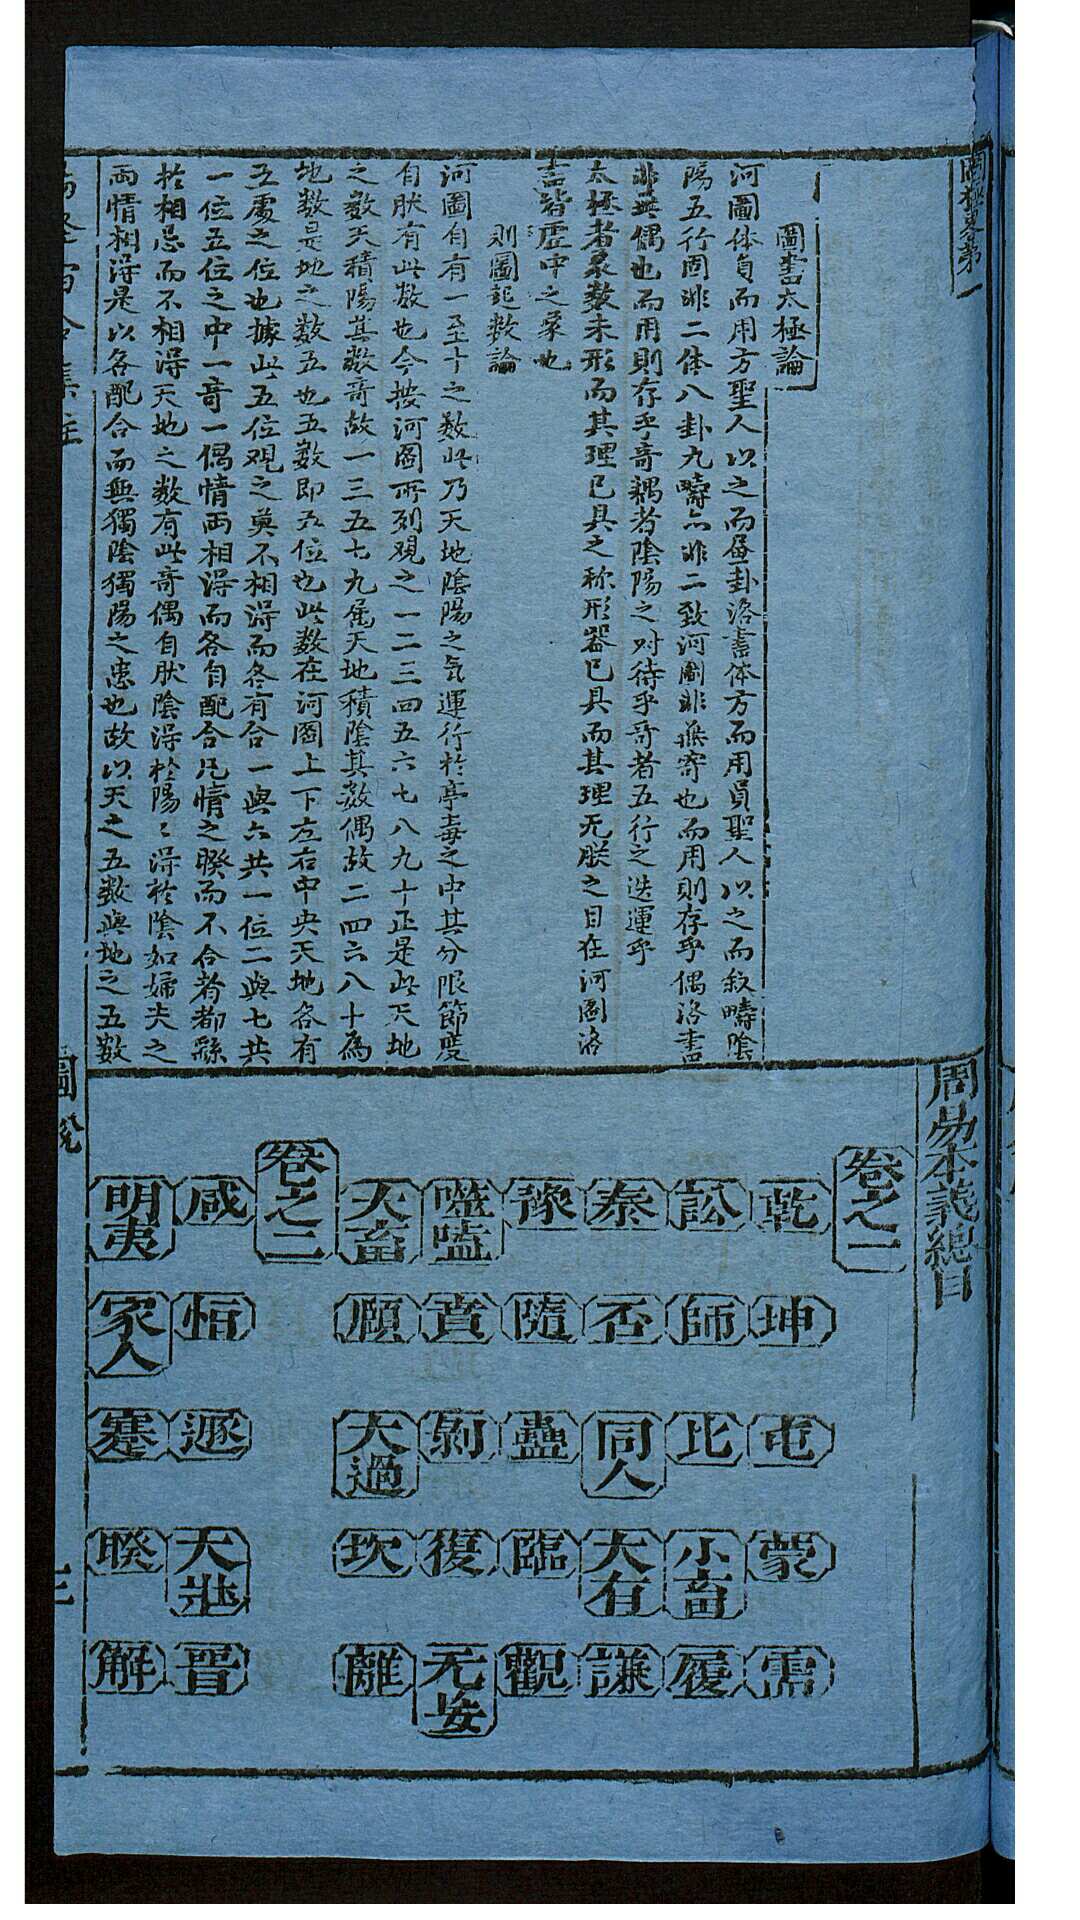 圖書太極論
河圖体負而用方聖人以之而畫卦洛書体方而用員聖人以之而叙疇陰
陽五行固非二体八卦九疇亦非二致河圖非無寄也而用則存乎偶洛書
非無偶也而用則存乎奇耦者陰陽之对待乎奇者五行之迭運乎
太極者象数未形而其理已具之称形器已具而其理无朕之目在河圖洛
書皆虛中之象也
則圖起数論
河圖自有一至十之数此乃天地陰陽之气運行於亭毒之中其分限節度
自肰有此数也今按河圖所列观之一二三四五六七八九十正是此天地
之数天積陽其数奇故一三五七九属天地積陰其数偶故二四六八十為
地数是地之数五也五数即五位也此数在河圖上下左右中央天地各有
五處之位也據此五位观之莫不相淂而各有合一與六共一位二與七共
一位五位之中一奇一偶情两相淂而各自配合凡情之暌而不合者都繇
扵相忌而不相淂天地之数有此奇偶自肰陰淂扵陽〻淂扵陰如婦夫之
两情相淂是以各配合而無獨陰獨陽之患也故以天之五数與地之五数
圖說
周易本義總目
卷之一
乾 坤 屯 蒙 需
訟 師 比 小畜 履
泰 否 同人 大有 謙
豫 隨 蠱 臨 觀
噬嗑 賁 剝 復 无妄
大畜 頤 大過 坎 離
卷之二
咸 恒 遯 大壯 晋
明夷 家人 蹇 暌 解